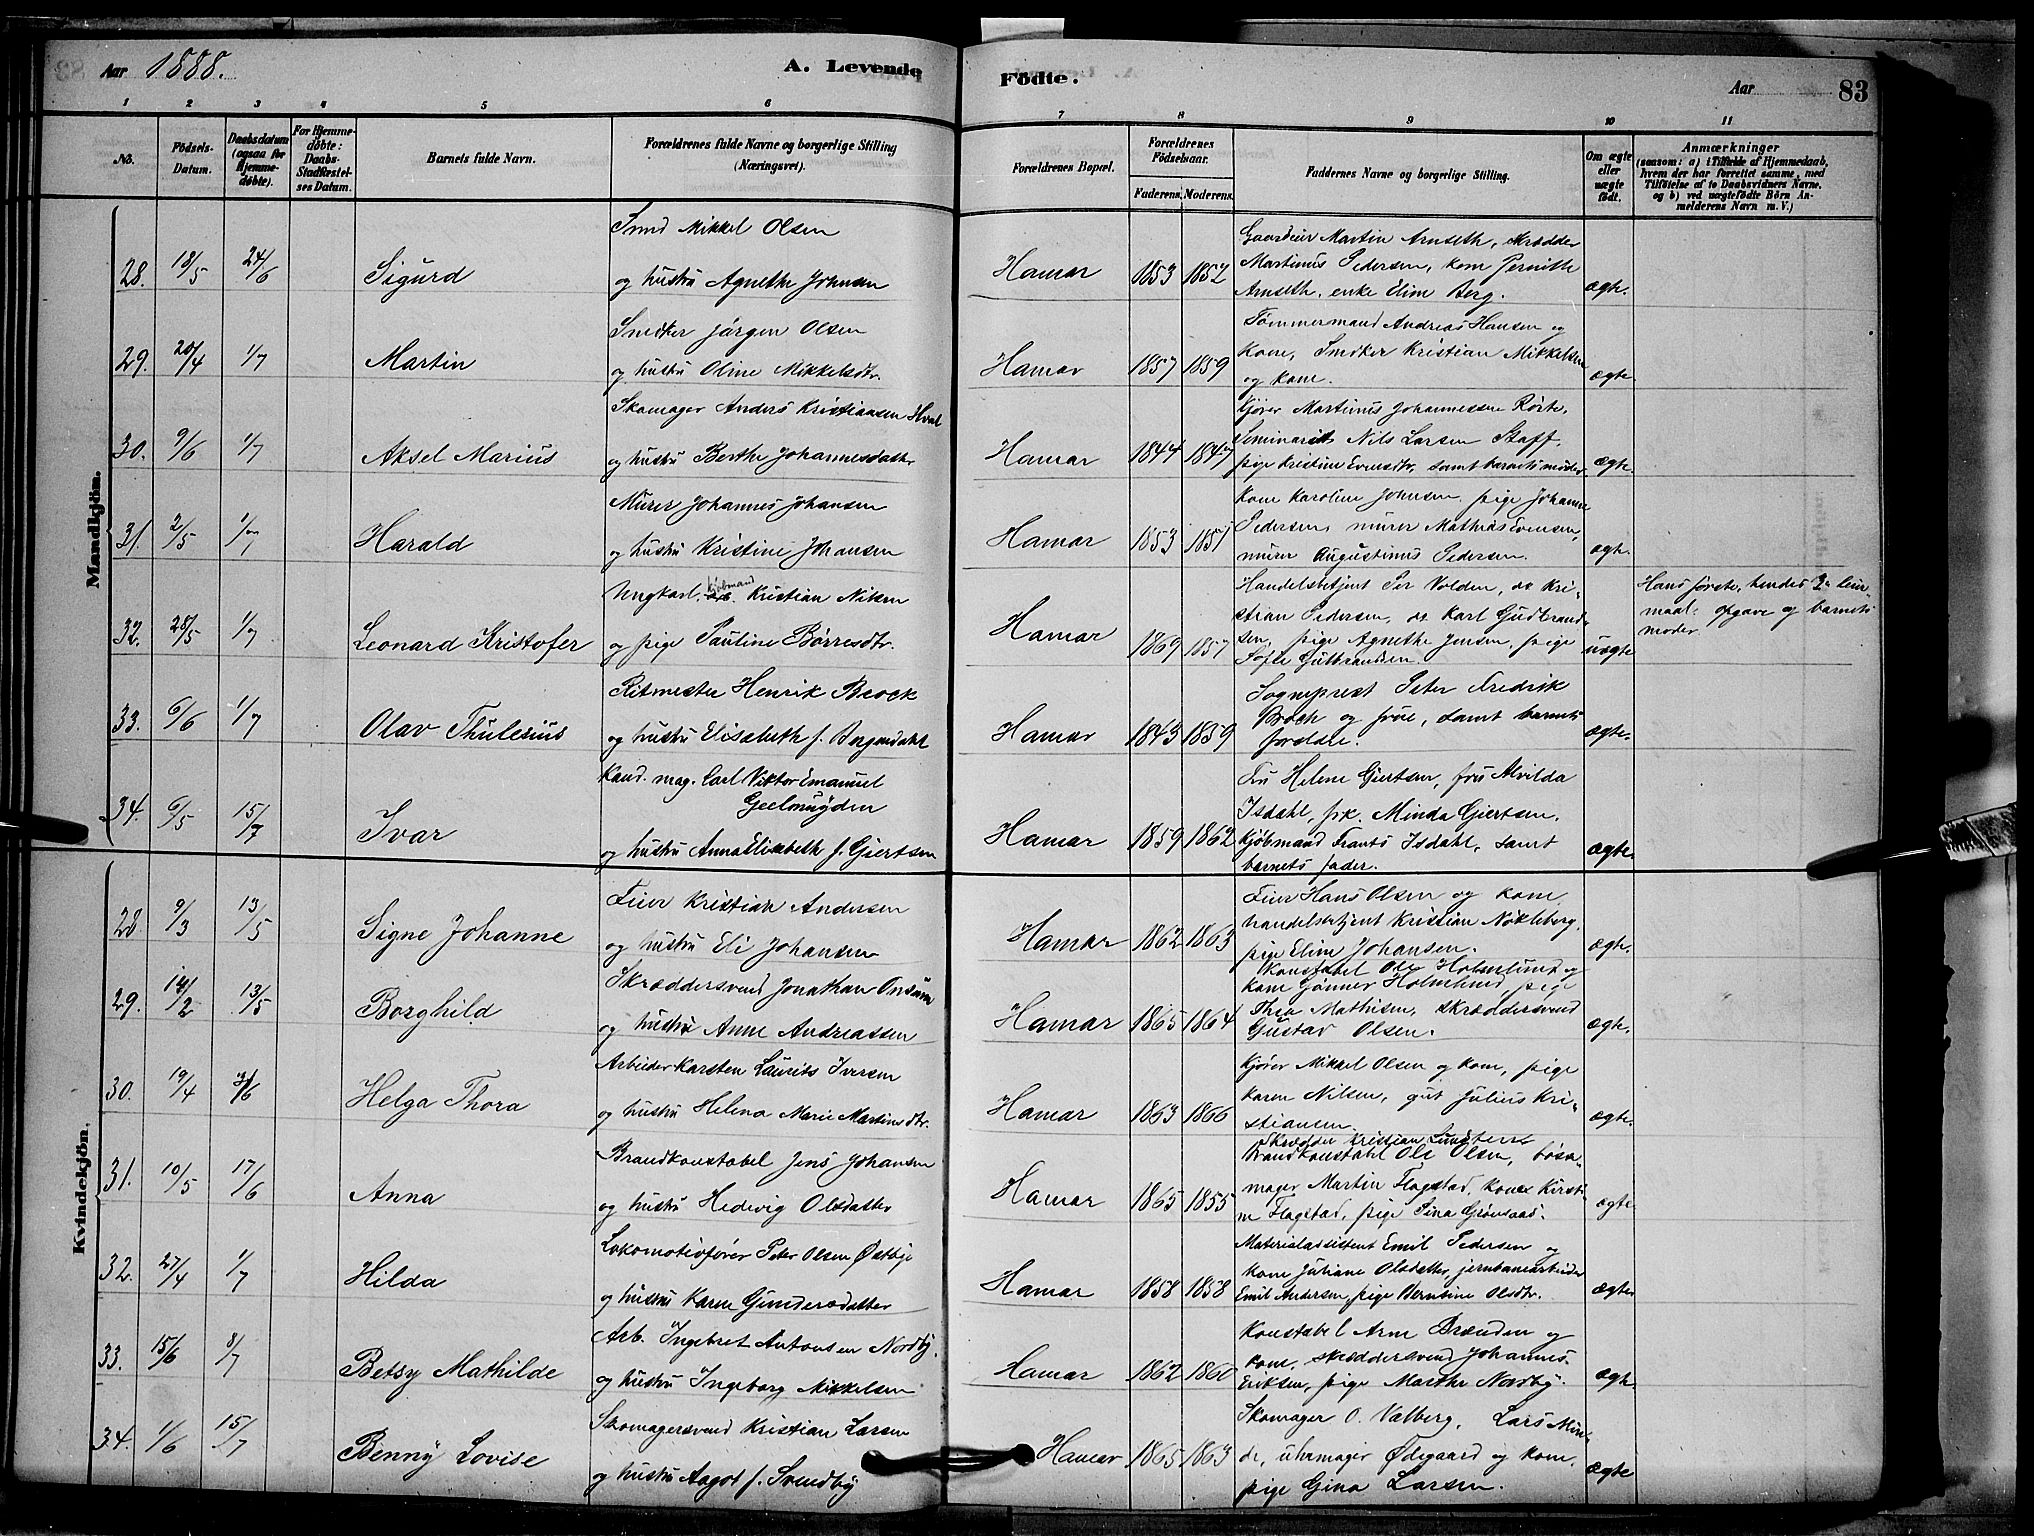 Aar 1888.
A. Levende Fødte.
Aar 83
1 2 3 4 5 6 7 8 9 10 11
No.
Fødsels-Datum.
Daabsdatum (ogsaa for Hjemmedøbte).
For Hjemmedøbte: Daabs-Stadfæstelses Datum.
Barnets fulde Navn.
Forældrenes fulde Navne og borgerlige Stilling (Næringsvei).
Forældrenes Bopæl.
Forældrenes Fødselsaar.
Faderens. Moderens.
Faddernes Navne og borgerlige Stilling.
Om ægte eller uægte født.
Anmærkninger
(saasom: a) i Tilfælde af Hjemmedaab, hvem der har forrettet samme, med Tilføielse af to Daabsvidners Navne. og b) ved uægtefødte Børn Anmelderens Navn m. V.)
Mandkjøn.
28. 18/5 24/6 Sigurd
Smed Mikkel Olsen
og hustru Agnethe Johnsen
Hamar 1853 1852
Gaardeier Martin Arnseth, skrædder
Martinus Pedersen, kone Pernille
Arnseth, enke Eline Berg.
ægte.
29. 20/4 1/7 Martin
Snedker Jørgen Olsen
og hustru Oline Mikkelsdtr.
Hamar 1857 1859
Tømmermand Andreas Hansen og
kone, Snedker Kristian Mikkelsen
og kone.
ægte
30. 9/6 1/7 Aksel Marius
Skomager Anders Kristiansen Hval
og hustru Berthe Johannesdatter
Hamar 1844 1847
Kjører Martinus Johannessen Rørte,
Seminarist Nils Larsen Staff,
pige Kristine Evensdtr, samt barnets moder
ægte.
31. 2/5 1/7 Harald
Murer Johannes Johansen
og hustru Kristine Johansen
Hamar 1853 1851
Kone Karoline Johnsen, pige Johanne
Pedersen, murer Mathias Evensen,
murer Augustinus Pedersen.
ægte.
32. 28/5 1/7 Leonard Kristofer
Ungkarl, kjøbmand Kristian Nilsen
og pige Pauline Børresdtr.
Hamar 1869 1857
Handelsbetjent Per Volden, do Kri-
stian Pedersen, do Karl Gudbrand-
sen, pige Agnethe Jensen, pige
Sofie Gulbrandsen
uægte
Hans første, hendes 2. leier-
maal. opgave og barnets
moder.
33. 6/6 1/7 Olav Thulesius
Ritmester Henrik Brock
og hustru Elisabeth f. Bergendahl
Hamar 1843 1859
Sogneprest Peter Fredrik
Brock og frue, samt barnets
forældre.
ægte.
34. 6/5 15/7 Ivar
Kand. mag. Carl Viktor Emanuel
Geelmuyden
og hustru Anna Elisabeth f. Gjertsen
Hamar 1859 1862
Fru Helene Gjertsen, fru Alvilda
Isdahl, frk. Minda Gjertsen,
kjøbmand Frants Isdahl, samt
barnets fader.
ægte
Kvindekjøn.
28. 9/3 13/5 Signe Johanne
Feier Kristian Andersen
og hustru Eli Johansen
Hamar 1862 1863
Feier Hans Olsen og kone,
handelsbetjent Kristian Nökleberg,
pige Eline Johansen.
ægte.
29. 13/5 Borghild
Skræddersvend Jonathan
og hustru Anne Andreassen
Hamar 1865 1864
Konstabel Ole Holmlund og
kone Gønner Holmlund, pige
Thea Mathisen, skræddersvend
Gustav Olsen.
ægte.
30. 19/4 Helga Thora
Arbeider Karsten Laurits Iversen
og hustru Helena Marie Martinsdtr.
Hamar 1863 1866
Kjører Mikkel Olsen og kone, pige
Karen Nilsen, gut Julius Kri-
stiansen.
ægte.
31. 10/5 17/6 Anna
Brandkonstabel Jens Johansen
og hustru Hedevig Olsdatter
Hamar 1865 1855
Skrædder Kristian
Brandkonstabel Ole Olsen, børse-
mager Martin Flagstad, kone Kirsti-
ne Flagstad, pige Sina
ægte
32. 27/4 1/7 Hilda
Lokomotivfører Peter Olsen Østbye
og hustru Karen Gundersdatter
Hamar 1858 1858
Materialassistent Emil Pedersen og
kone Juliane Olsdatter, jernbanearbeider
Emil Andersen, pige Berntine Olsdtr.
ægte
33. 15/6 8/7 Betsy Mathilde
Arb. Ingebret Antonsen Nordby,
og hustru Ingeborg Mikkelsen
Hamar 1862 1860
Konstabel Arne Brænden og
kone, skræddersvend Johannes
Eriksen, pige Marthe Nordby.
ægte.
34. 1/6 15/7 Benny Lovise
Skomagersvend Kristian Larsen
og hustru Aagot f. Svendby
Hamar 1865 1863
Skomager O. Valberg, Lars Mun-
de, uhrmager Ødegaard og kone,
pige Gina Larsen.
ægte